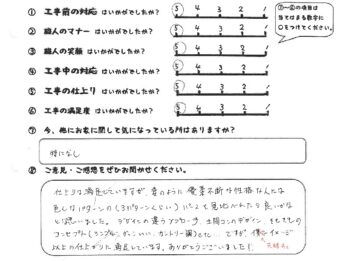 ① 工事前の対応 はいかがでしたか? 5 4 3 2 1
② 職人のマナー はいかがでしたか? 5 4 3 2 1
③ 職人の笑顔 はいかがでしたか? 5 4 3 2 1
④ 工事中の対応 はいかがでしたか? 5 4 3 2 1
⑤ 工事の仕上り はいかがでしたか? 5 4 3 2 1
⑥ 工事の満足度 はいかがでしたか? 5 4 3 2 1
①〜⑥の項目は
当てはまる数字に
○をつけてください。
⑦ 今、他にお家に関して気になっている所はありますか?
特になし
⑧ ご意見・ご感想をぜひお聞かせください。
仕上りは満足していますが、妻のように優柔不断な性格なんな
色んなパターンの(3パターンくらい)
と思いました。デザインの違うアプローチ、土間コンのデザイン、
コンセプト(シンプル、かっこいい、カントリー調)
以上の仕上がりに満足しています。ありがとうございました!!